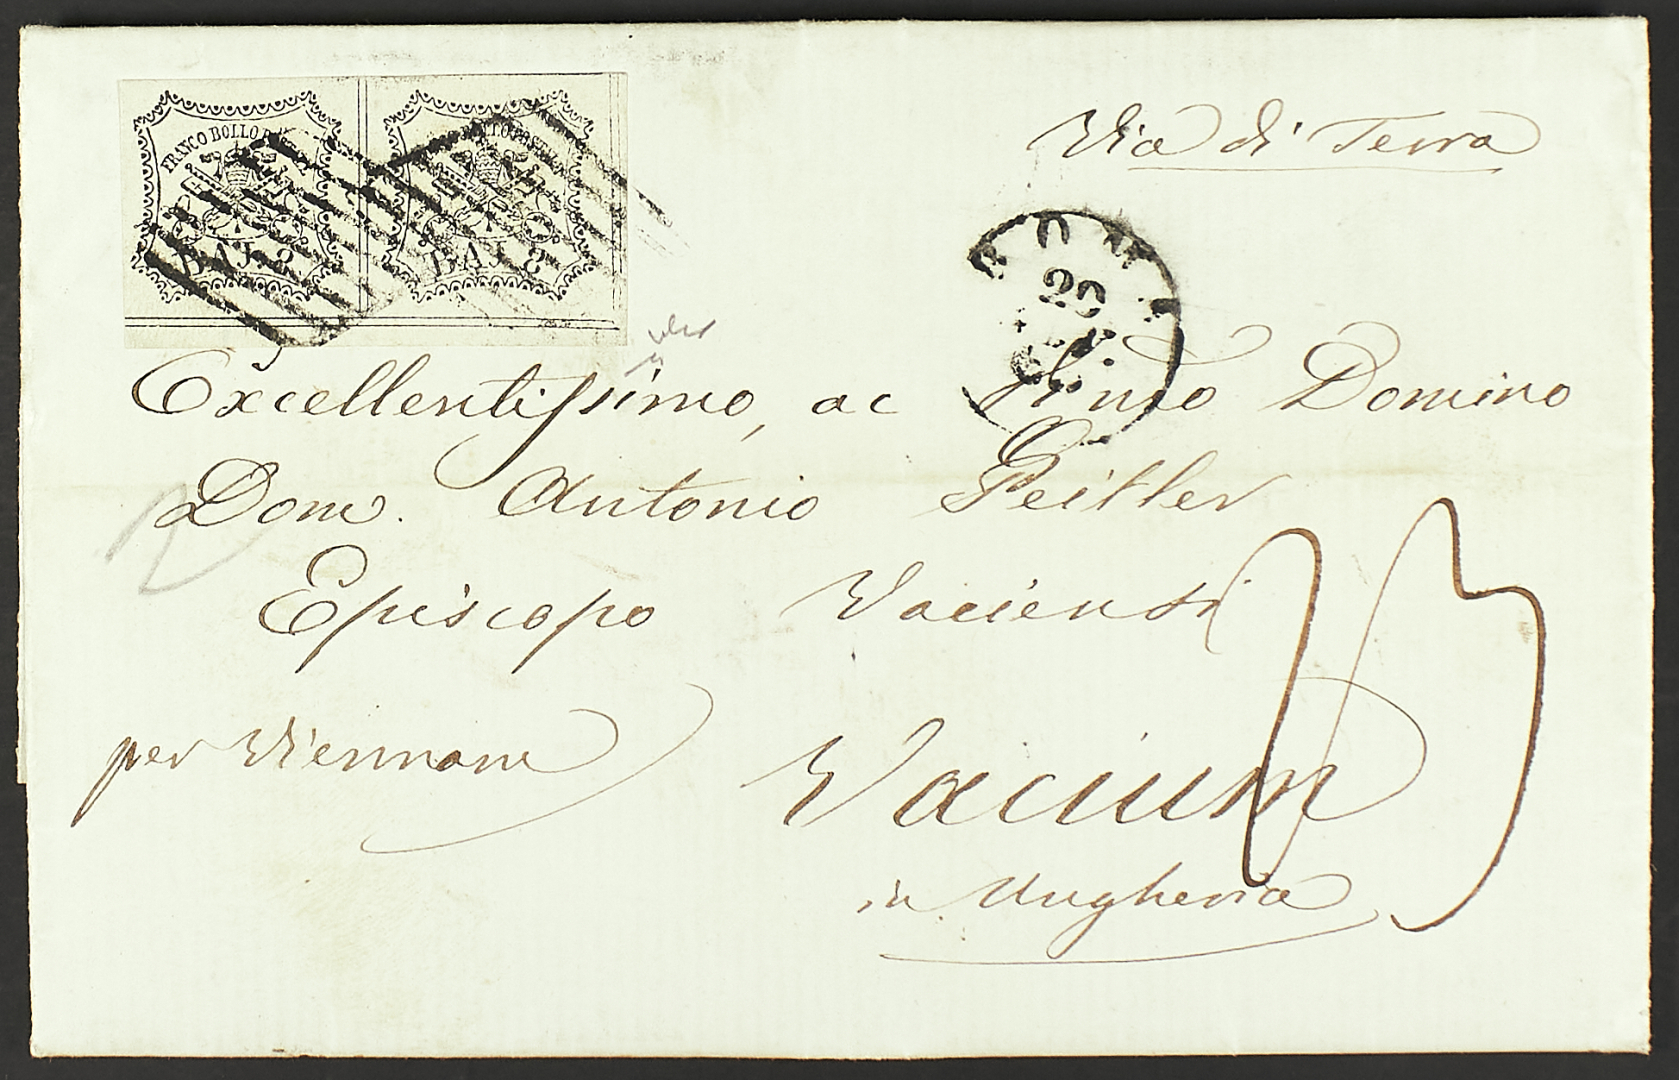 FRANCO BOLLO POSTALE
BAJ. 8
FRANCO BOLLO POSTALE
BAJ. 8
Via di Terra
ROMA
20
Excellentissimo, ac Domino
Dom. Antonio Peitler
Episcopo Vaciensi
per Viennam
Vacium
in Ungheria